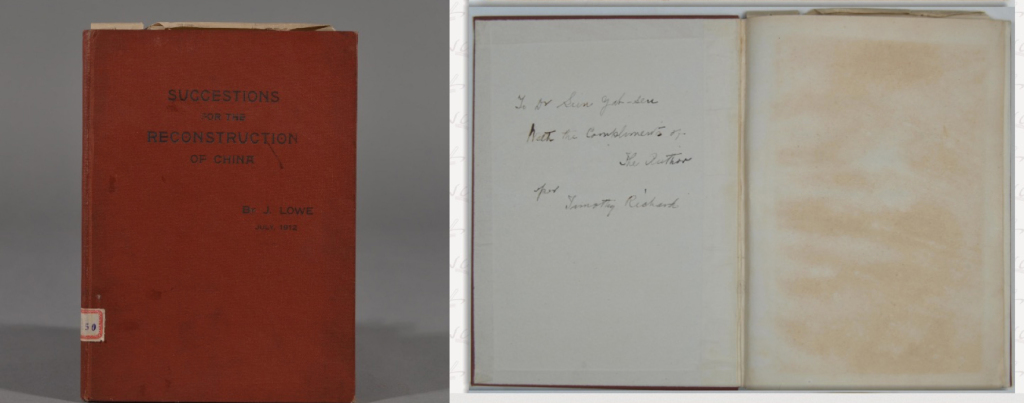 SUGGESTIONS
FOR THE
RECONSTRUCTION
OF CHINA
BY J. LOWE
JULY, 1912
50
To Dr Sun Yat-sen
With the Compliments of
The Author
per
Timothy Richard